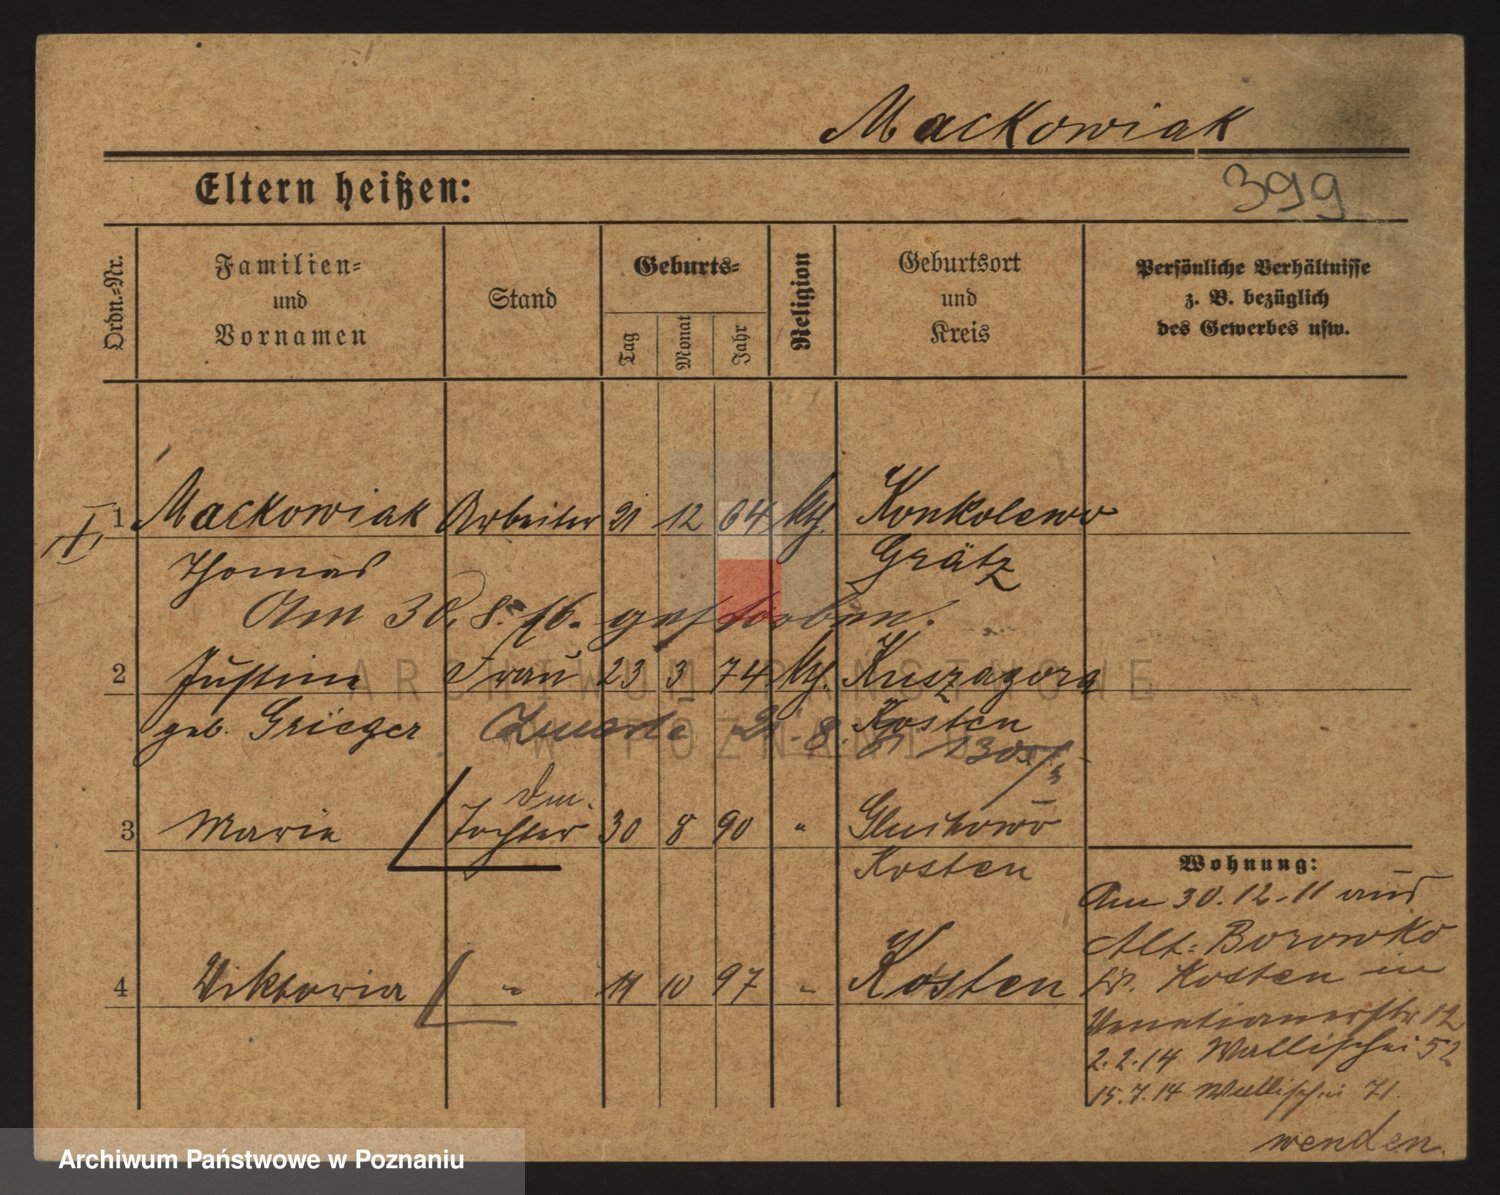 Mackowiak
399
Eltern heißen:
Ordn.-Nr.
Familien-
und
Vornamen
Stand
Geburts-
Tag
Monat
Jahr
Religion
Geburtsort
und
Kreis
Persönliche Verhältnisse
z. B. bezüglich
des Gewerbes usw.
1 Mackowiak Arbeiter 21 12 64 kth. Konkolewo
Thomas Grätz
Am 30. 8. 16. gestorben.
2 Justine Frau 23 3 74 kth. Kuszagora
geb. Grieger Kosten
Zmarła 21. 8.
3 Marie Tochter 30 8 90 " Gluchowo
Kosten
Wohnung:
Am 30.12.11 aus
Alt-Borowko
Kr. Kosten in
Venetianerstr 12
2.2.14 Wallischei 52
15.7.14 Wallischei 71.
4 Viktoria " 11 10 97 " Kosten
wenden.
ARCHIWUM PAŃSTWOWE
W POZNANIU
Archiwum Państwowe w Poznaniu